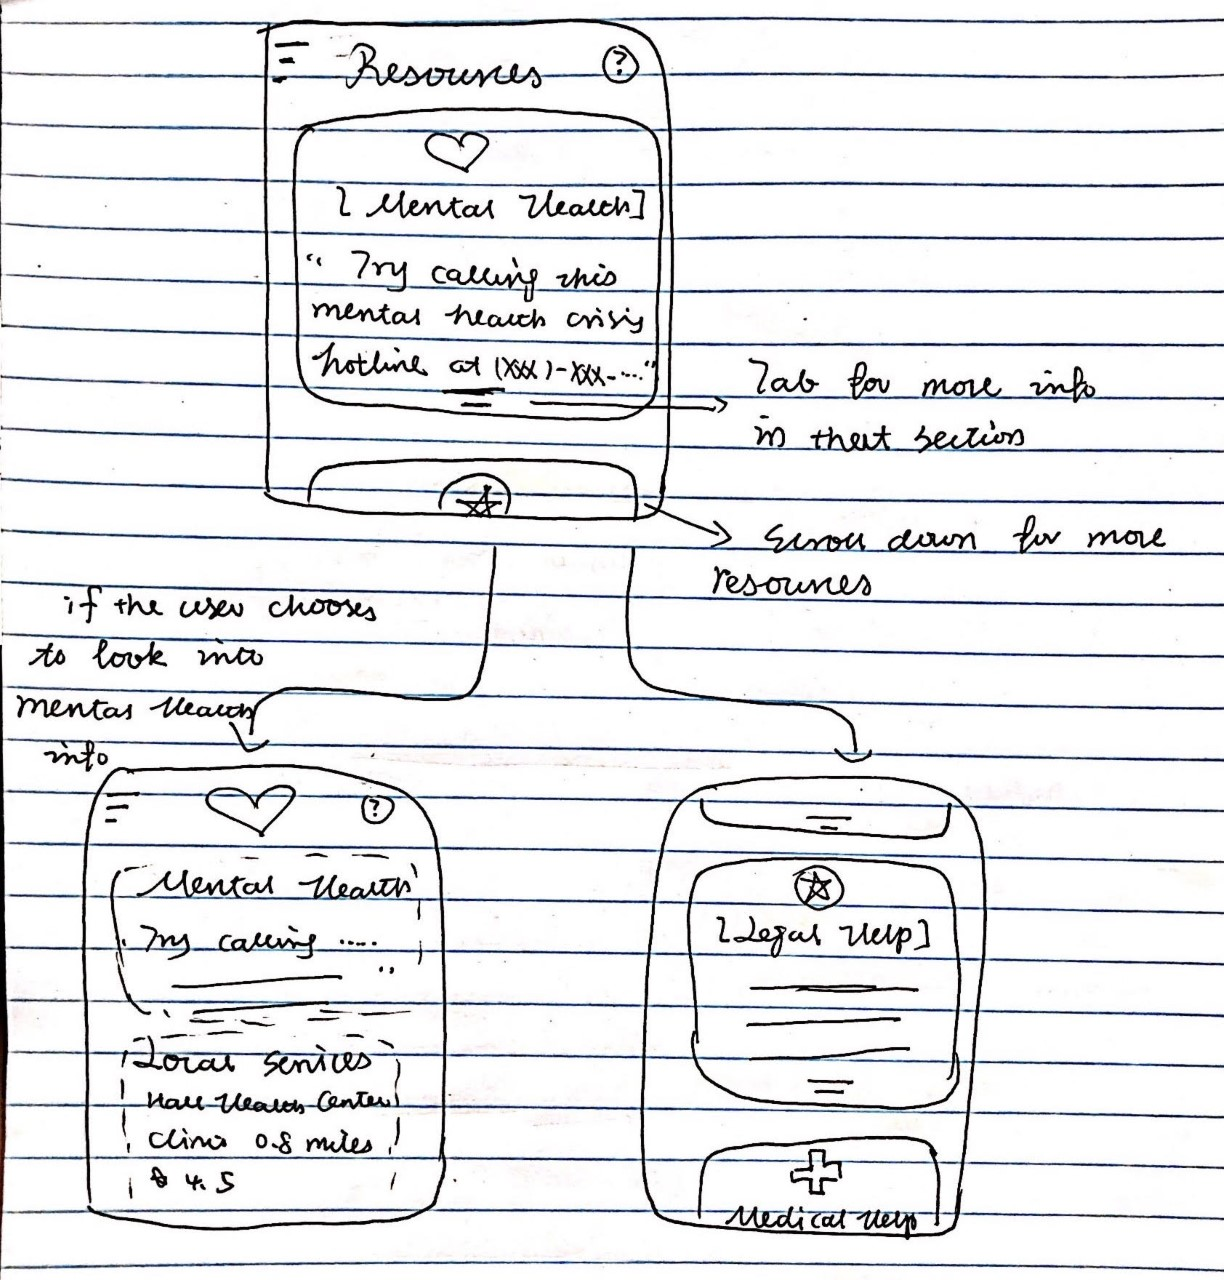 Resources ?
[ Mental Health]
" Try calling this
mental health crisis
hotline at (XXX)-XXX-...."
Tab for more info
in that section
Scroll down for more
resources
if the user chooses
to look into
mental health
info
?
Mental Health
Try calling .....
Local Services
Hall Health Center
Clinic 0.8 miles
4.5
[Legal Help]
Medical Help